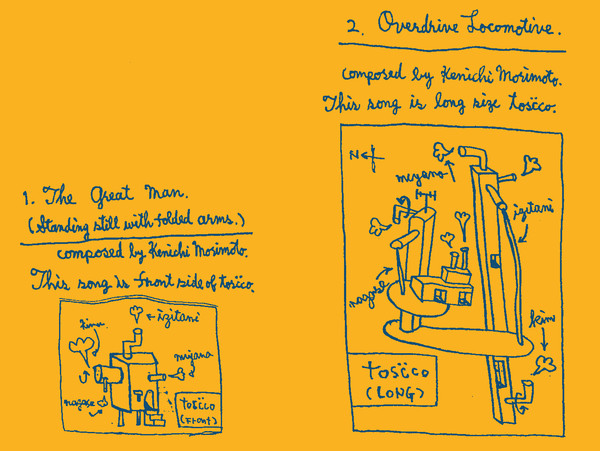 1. The Great Man.
(Standing still with folded arms.)
composed by Kenichi Morimoto.
This song is front side of tosïco.
izitani
kimu
miyano
nagase
tosïco
(Front)
2. Overdrive Locomotive.
composed by Kenichi Morimoto.
This song is long size tosïco.
N
miyano
izitani
nagase
kimu
tosïco
(LONG)